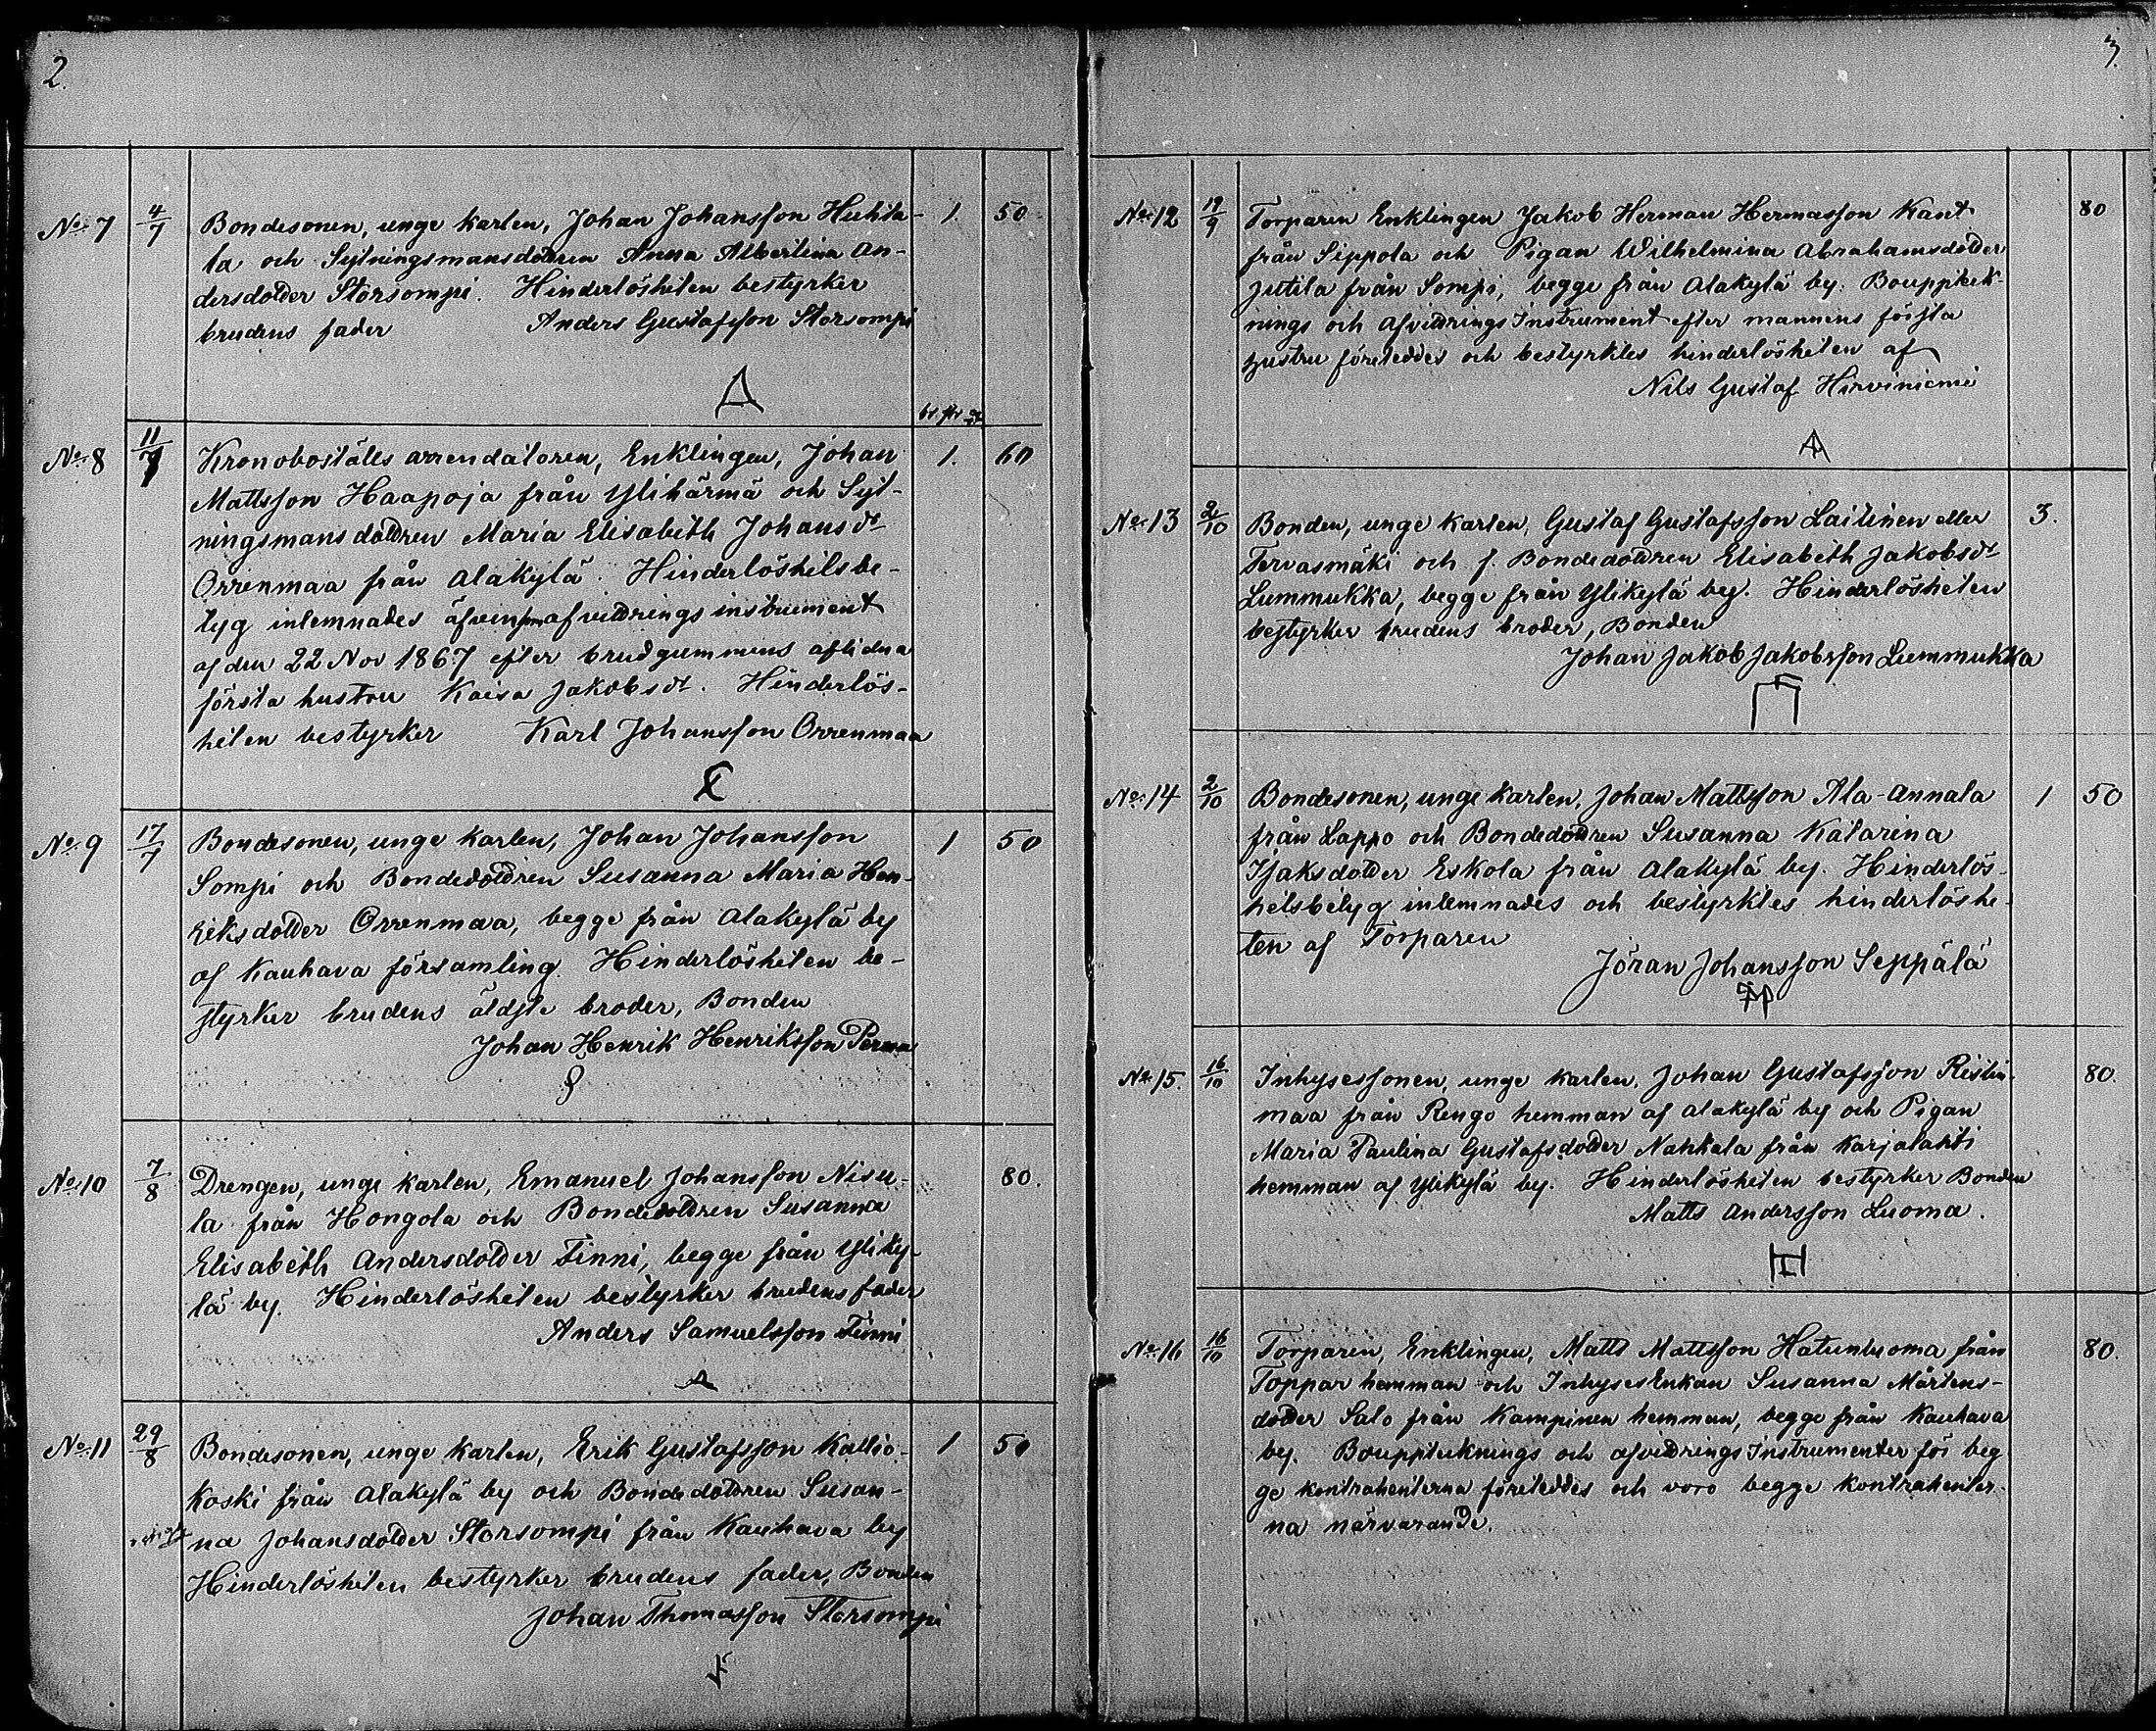 2.
No 7 4/7 Bondesonen, unge karlen, Johan Johansson Huhta- 1. 50
la och Sytningsmansdottren Anna Albertina An-
dersdotter Storsompi. Hinderlösheten bestyrker
brudens fader Anders Gustafsson Storsompi
No 8 11/7 Kronoboställs arrendatoren, Enklingen, Johan 1. 60
Mattsson Haapoja från Ylihärmä och Syt-
ningsmansdottren Maria Elisabeth Johansdr
Orrenmaa från Alakylä. Hinderlöshetsbe-
tyg inlemnades äfvensom afvittrings instrument
af den 22 Nov 1867 efter brudgummens aflidna
första hustru Kaisa Jakobsdr. Hinderlös-
heten bestyrker Karl Johansson Orrenmaa
No 9 17/7 Bondesonen, unge karlen, Johan Johansson 1 50
Sompi och Bondedottren Susanna Maria Hen-
riksdotter Orrenmaa, begge från Alakylä by
af Kauhava församling. Hinderlösheten be-
styrker brudens äldste broder, Bonden
Johan Henrik Henriksson Perma
No 10 7/8 Drengen, unge karlen, Emanuel Johansson Nisu- 80.
la från Hongola och Bondedottren Susanna
Elisabeth Andersdotter Finni, begge från Yliky-
lä by. Hinderlösheten bestyrker brudens fader
Anders Samuelsson Finni
No 11 29/8 Bondesonen, unge karlen, Erik Gustafsson Kallio- 1 50
koski från Alakylä by och Bondedottren Susan-
na Johansdotter Storsompi från Kauhava by
Hinderlösheten bestyrker brudens fader, Bonden
Johan Thomasson Storsompi
3.
No 12 19/9 Torparen Enklingen Jakob Herman Hermasson Kant 80
från Sippola och Pigan Wilhelmina Abrahamsdotter
Jutila från Sompi, begge från Alakylä by. Bouppteck-
nings och Afvittrings Instrument efter mannens första
hustru företeddes och bestyrktes hinderlösheten af
Nils Gustaf Hirviniemi
No 13 2/10 Bonden, unge karlen, Gustaf Gustafsson Laitinen eller 3.
Tervasmäki och f. Bondedottren Elisabeth Jakobsdr
Lummukka, begge från Ylikylä by. Hinderlösheten
bestyrker brudens broder, Bonden
Johan Jakob Jakobsson Lummukka
No 14 2/10 Bondesonen, unge karlen, Johan Mattsson Ala-Annala 1 50
från Lappo och Bondedottren Susanna Katarina
Isaksdotter Eskola från Alakylä by. Hinderlös-
hetsbetyg inlemnades och bestyrktes hinderlöshe-
ten af Torparen
Jöran Johansson Seppälä
No 15. 16/10 Inhysessonen, unge karlen, Johan Gustafsson Ristin- 80.
maa från Rengo hemman af Alakylä by och Pigan
Maria Paulina Gustafsdotter Nahkala från Karjalahti
hemman af Ylikylä by. Hinderlösheten bestyrker Bonden
Matts Andersson Luoma.
No 16 16/10 Torparen, Enklingen, Matts Mattsson Hatunluoma från 80.
Toppar hemman och InhysesEnkan Susanna Mårtens-
dotter Salo från Kampinen hemman, begge från Kauhava
by. Bouppteknings och afvittrings Instrumenter för beg
ge kontrahenterna företeddes och voro begge kontrahenter-
na närvarande.